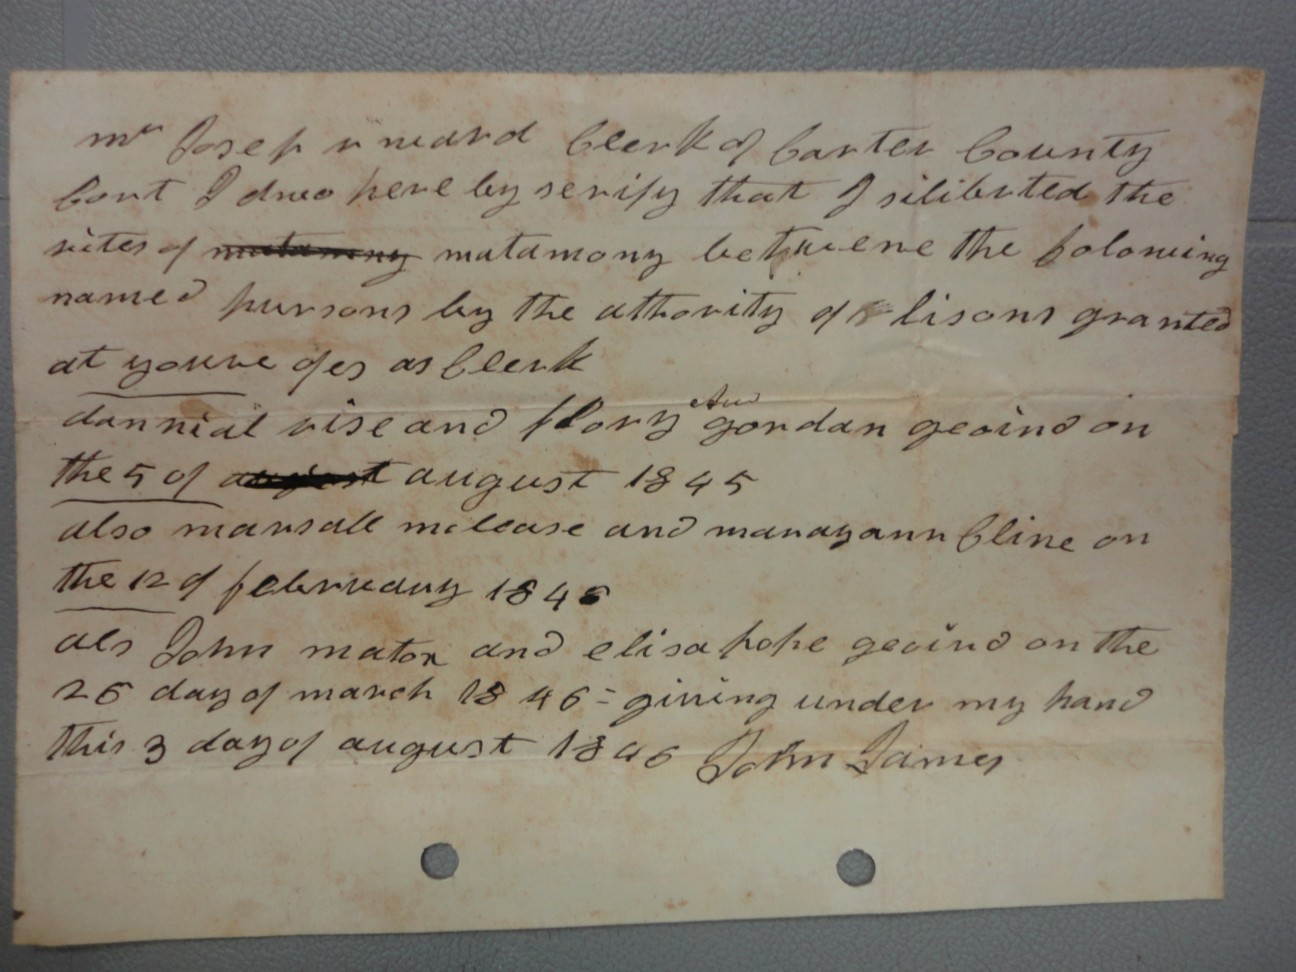 mr Josep r ward Clerk of Carter County
Cort I duo here by serify that I silibrted the
rites of matamony matamony betwene the foloweing
named pursons by the athority of lisons granted
at youre ofes as Clerk
dannial rise and flory Ann gordan geoind on
the 5 of august august 1845
also marsall mclease and marayann Cline on
the 12 of februeary 1846
als John mator and elisa pope geoind on the
26 day of march 1846 = giving under my hand
this 3 day of august 1846 John James